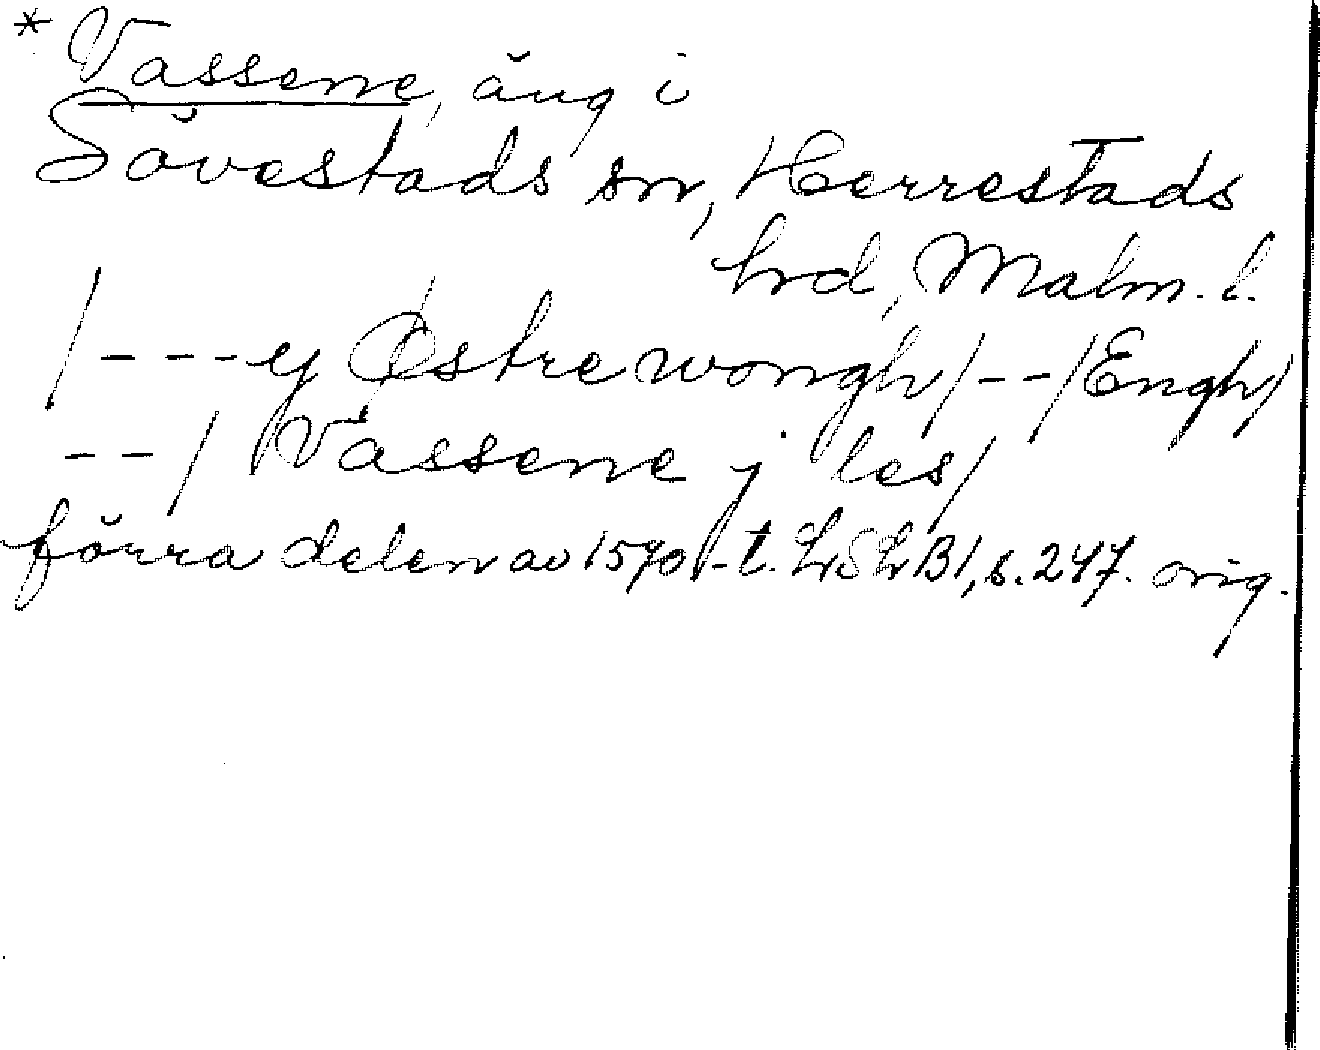 * Vassene, äng i
Sövestads sn, Herrestads
hrd, Malm. l.
/---y Østre wongh/--/Engh/
--/ Vassene j les/
förra delen av 1570-t. LSLB1, s. 247. orig.